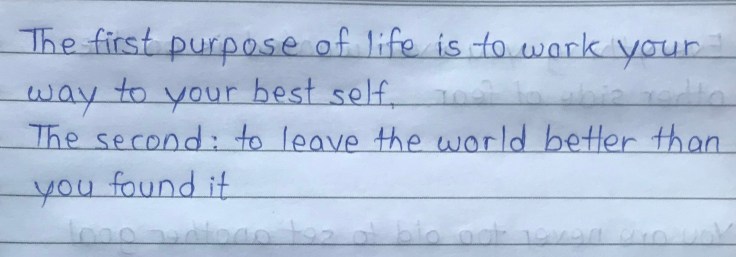 The first purpose of life is to work your
way to your best self.
The second: to leave the world better than
you found it